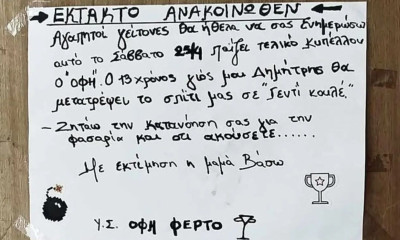 ΕΚΤΑΚΤΟ ΑΝΑΚΟΙΝΩΘΕΝ
Αγαπητοί γείτονες θα ήθελα να σας ενημερώσω
αυτό το Σάββατο 25/4 παίζει τελικό κυπέλλου
ο "ΟΦΗ". Ο 13χρονος γιός μου Δημήτρης θα
μετατρέψει το σπίτι μας σε "Γεντί κουλέ."
- Ζητάω την κατανόηση σας για την
φασαρία και ότι ακούσετε......
Με εκτέμηση η μαμά Βάσω
Υ.Σ. ΟΦΗ ΦΕΡΤΟ